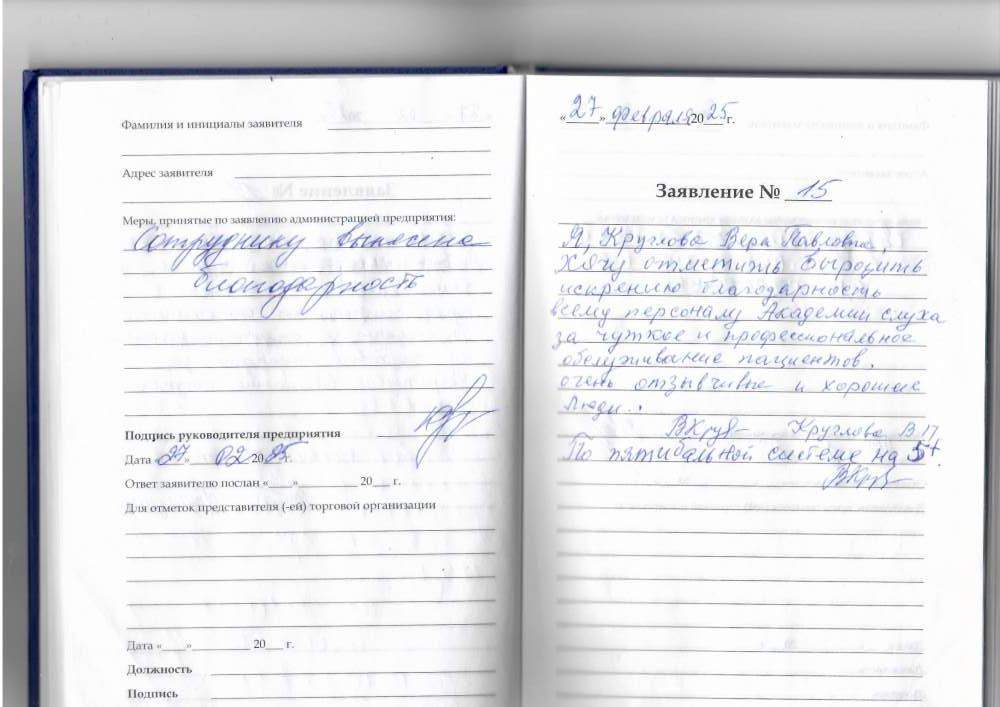 Фамилия и инициалы заявителя
Адрес заявителя
Меры, принятые по заявлению администрацией предприятия:
Сотруднику вынесена
благодарность
Подпись руководителя предприятия
Дата «27» 02 2025 г.
Ответ заявителю послан «___»__________ 20___ г.
Для отметок представителя (-ей) торговой организации
Дата «___»__________ 20___ г.
Должность
Подпись
«27» февраля 2025 г.
Заявление № 15
Я, Круглова Вера Павловна,
хочу отметить выразить
искреннюю благодарность
всему персоналу Академии слуха
за чуткое и профессиональное
обслуживание пациентов.
очень отзывчивые и хорошие
люди.
ВКруг Круглова В.П.
По пятибальной системе на 5+.
ВКруг